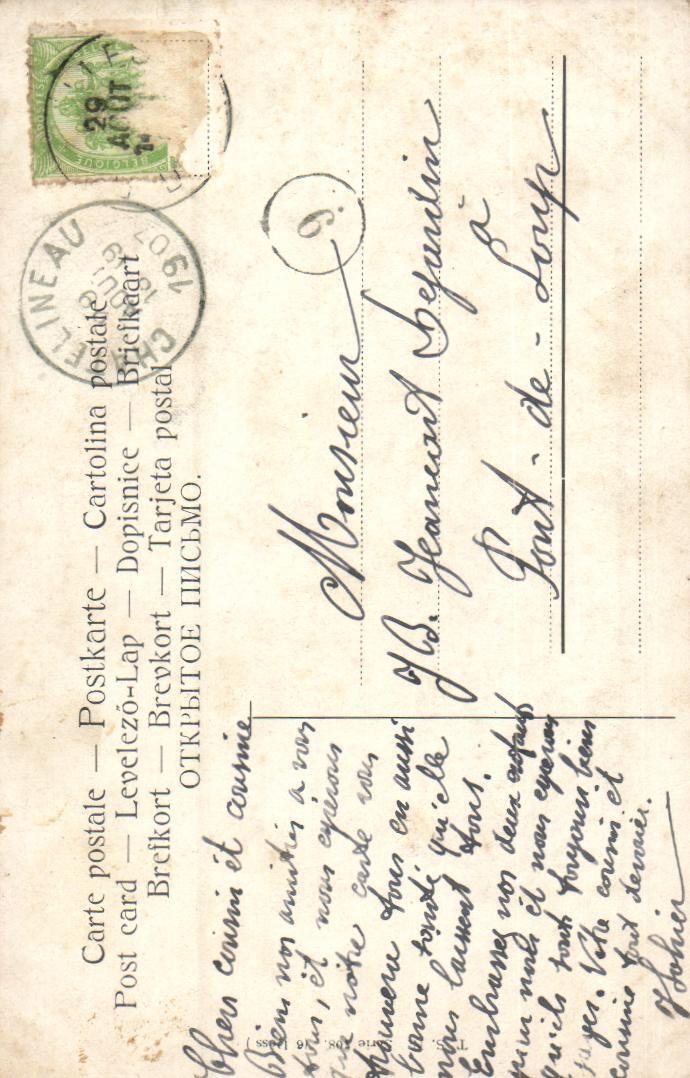 Carte postale — Postkarte — Cartolina postale
Post card — Levelező-Lap — Dopisnice — Briefkaart
Brefkort — Brevkort — Tarjeta postal
ОТКРЫТОЕ ПИСЬМО.
BELGIQUE
29
AOÛT
CHATELINEAU
1907
6
Monsieur
JB. Jeanmart
à
Pont-de-Loup
Chers cousin et cousine
Biens nos amitiés à vous
tous, et nous espérons
que notre carte vous
tous en aussi
bonne santé qu'elle
nous laissent tous.
Embrassez nos deux enfants
pour nous et nous espérons
qu'ils sont toujours biens
sages. Votre cousin et
cousine tout dévoués.
T. S. Serie 408. (6 Dess.)